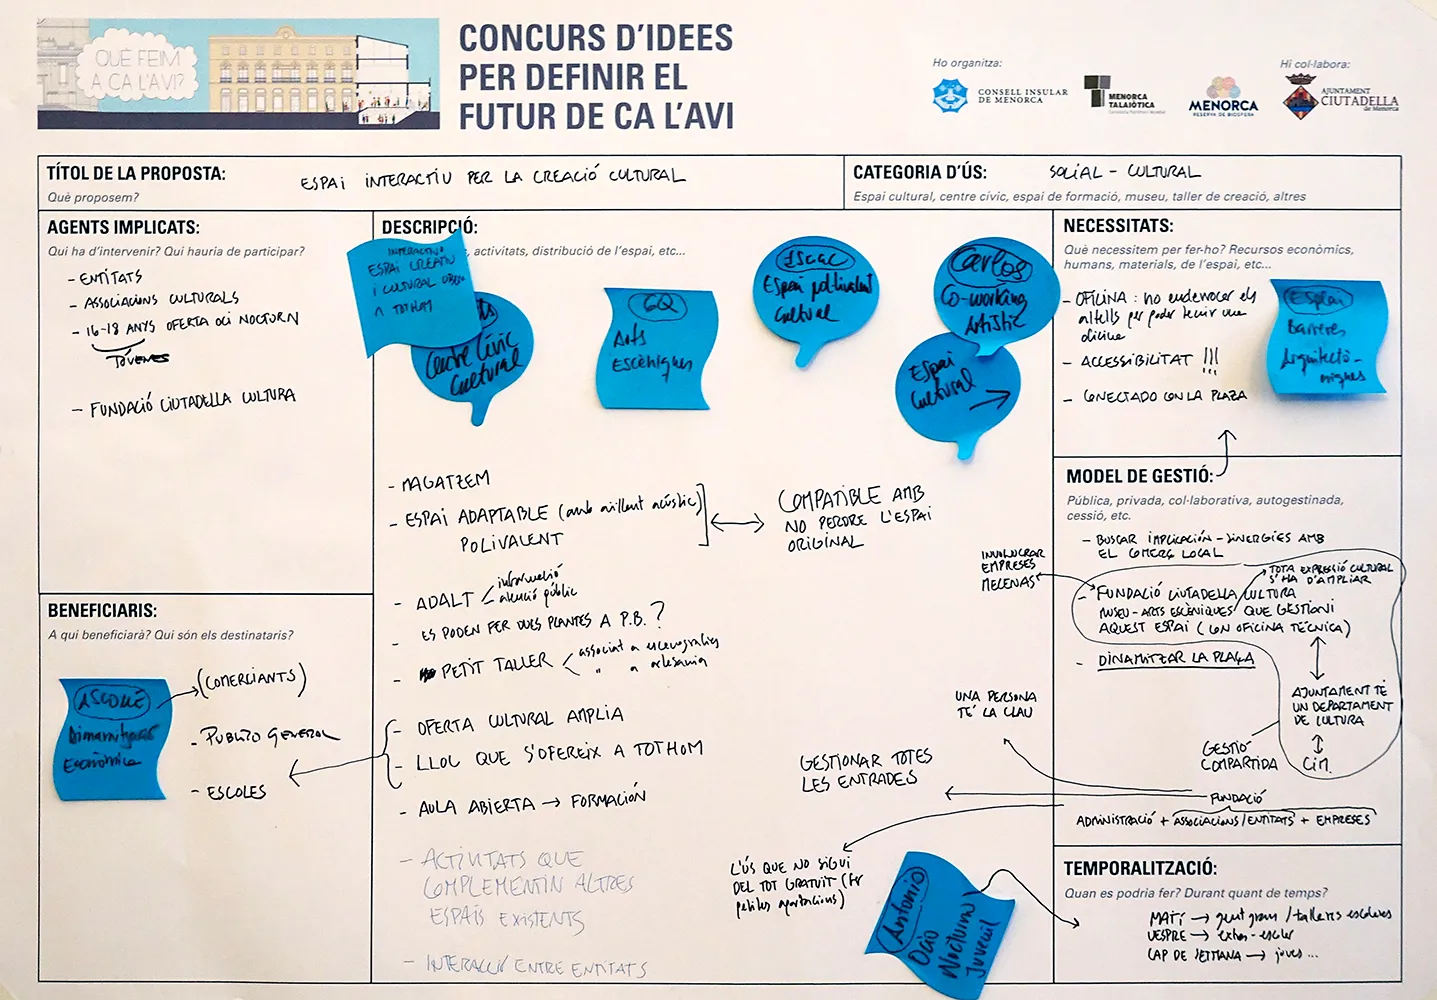 QUÈ FEIM
A CA L'AVI?
CONCURS D'IDEES
PER DEFINIR EL
FUTUR DE CA L'AVI
Ho organitza:
CONSELL INSULAR
DE MENORCA
MENORCA
TALAIÒTICA
MENORCA
RESERVA DE BIOSFERA
Hi col·labora:
AJUNTAMENT
CIUTADELLA
de Menorca
TÍTOL DE LA PROPOSTA:
ESPAi INTERACTIU PER LA CREACIÓ CULTURAL
Què proposem?
CATEGORIA D'ÚS:
SOCIAL - CULTURAL
Espai cultural, centre cívic, espai de formació, museu, taller de creació, altres
AGENTS IMPLICATS:
Qui ha d'intervenir? Qui hauria de participar?
- ENTITATS
- ASSOCIACIONS CULTURALS
- 16-18 ANYS OFERTA OCI NOCTURN
JÓVENES
- FUNDACIÓ CIUTADELLA CULTURA
DESCRIPCIÓ:
activitats, distribució de l'espai, etc...
ESPAI CREATIU
I CULTURAL OBERT
A TOTHOM
Centre Cívic
Cultural
GQ
Arts
Escèniques
Espai polivalent
Cultural
Carlos
Co-working
Artístic
Espai
Cultural
- MAGATZEM
- ESPAI ADAPTABLE (amb aïllant acústic)
POLIVALENT
COMPATIBLE AMB
NO PERDRE L'ESPAI
ORIGINAL
- ADALT
informació
atenció públic
- ES PODEN FER DUES PLANTES A P.B.?
- PETIT TALLER
associat a escenografies
" a artesania
- OFERTA CULTURAL AMPLIA
- LLOC QUE S'OFEREIX A TOTHOM
- AULA ABIERTA → FORMACIÓN
- ACTIVITATS QUE
COMPLEMENTIN ALTRES
ESPAIS EXISTENTS
- INTERACCIÓ ENTRE ENTITATS
INVOLUCRAR
EMPRESES
MECENAS
UNA PERSONA
TÉ LA CLAU
GESTIONAR TOTES
LES ENTRADES
L'ÚS QUE NO SIGUI
DEL TOT GRATUIT (fer
petites aportacions)
Antonio
Ocio
Nocturno
Juvenil
BENEFICIARIS:
A qui beneficiarà? Qui són els destinataris?
ASCOME
Dinamització
Econòmica
(COMERCIANTS)
- PUBLICO GENERAL
- ESCOLES
NECESSITATS:
Què necessitem per fer-ho? Recursos econòmics,
humans, materials, de l'espai, etc...
- OFICINA: no enderrocar els
altells per poder tenir una
oficina
- ACCESSIBILITAT !!!
- CONECTADO CON LA PLAZA
Esplai
Barreres
Arquitectò-
niques
MODEL DE GESTIÓ:
Pública, privada, col·laborativa, autogestinada,
cessió, etc.
- BUSCAR IMPLICACIÓN - SINERGIES AMB
EL COMERÇ LOCAL
TOTA EXPRESSIÓ CULTURAL
S'HA D'AMPLIAR
- FUNDACIÓ CIUTADELLA CULTURA
MUSEU - ARTS ESCÈNIQUES QUE GESTIONI
AQUEST ESPAI (CON OFICINA TÈCNICA)
- DINAMITZAR LA PLAÇA
AJUNTAMENT TÉ
UN DEPARTAMENT
DE CULTURA
GESTIÓ
COMPARTIDA
CIM.
FUNDACIÓ
ADMINISTRACIÓ + ASSOCIACIONS/ENTITATS + EMPRESES
TEMPORALITZACIÓ:
Quan es podria fer? Durant quant de temps?
MATÍ → gent gran / tallers escolares
VESPRE → extra-escolar
CAP DE SETMANA → joves ...